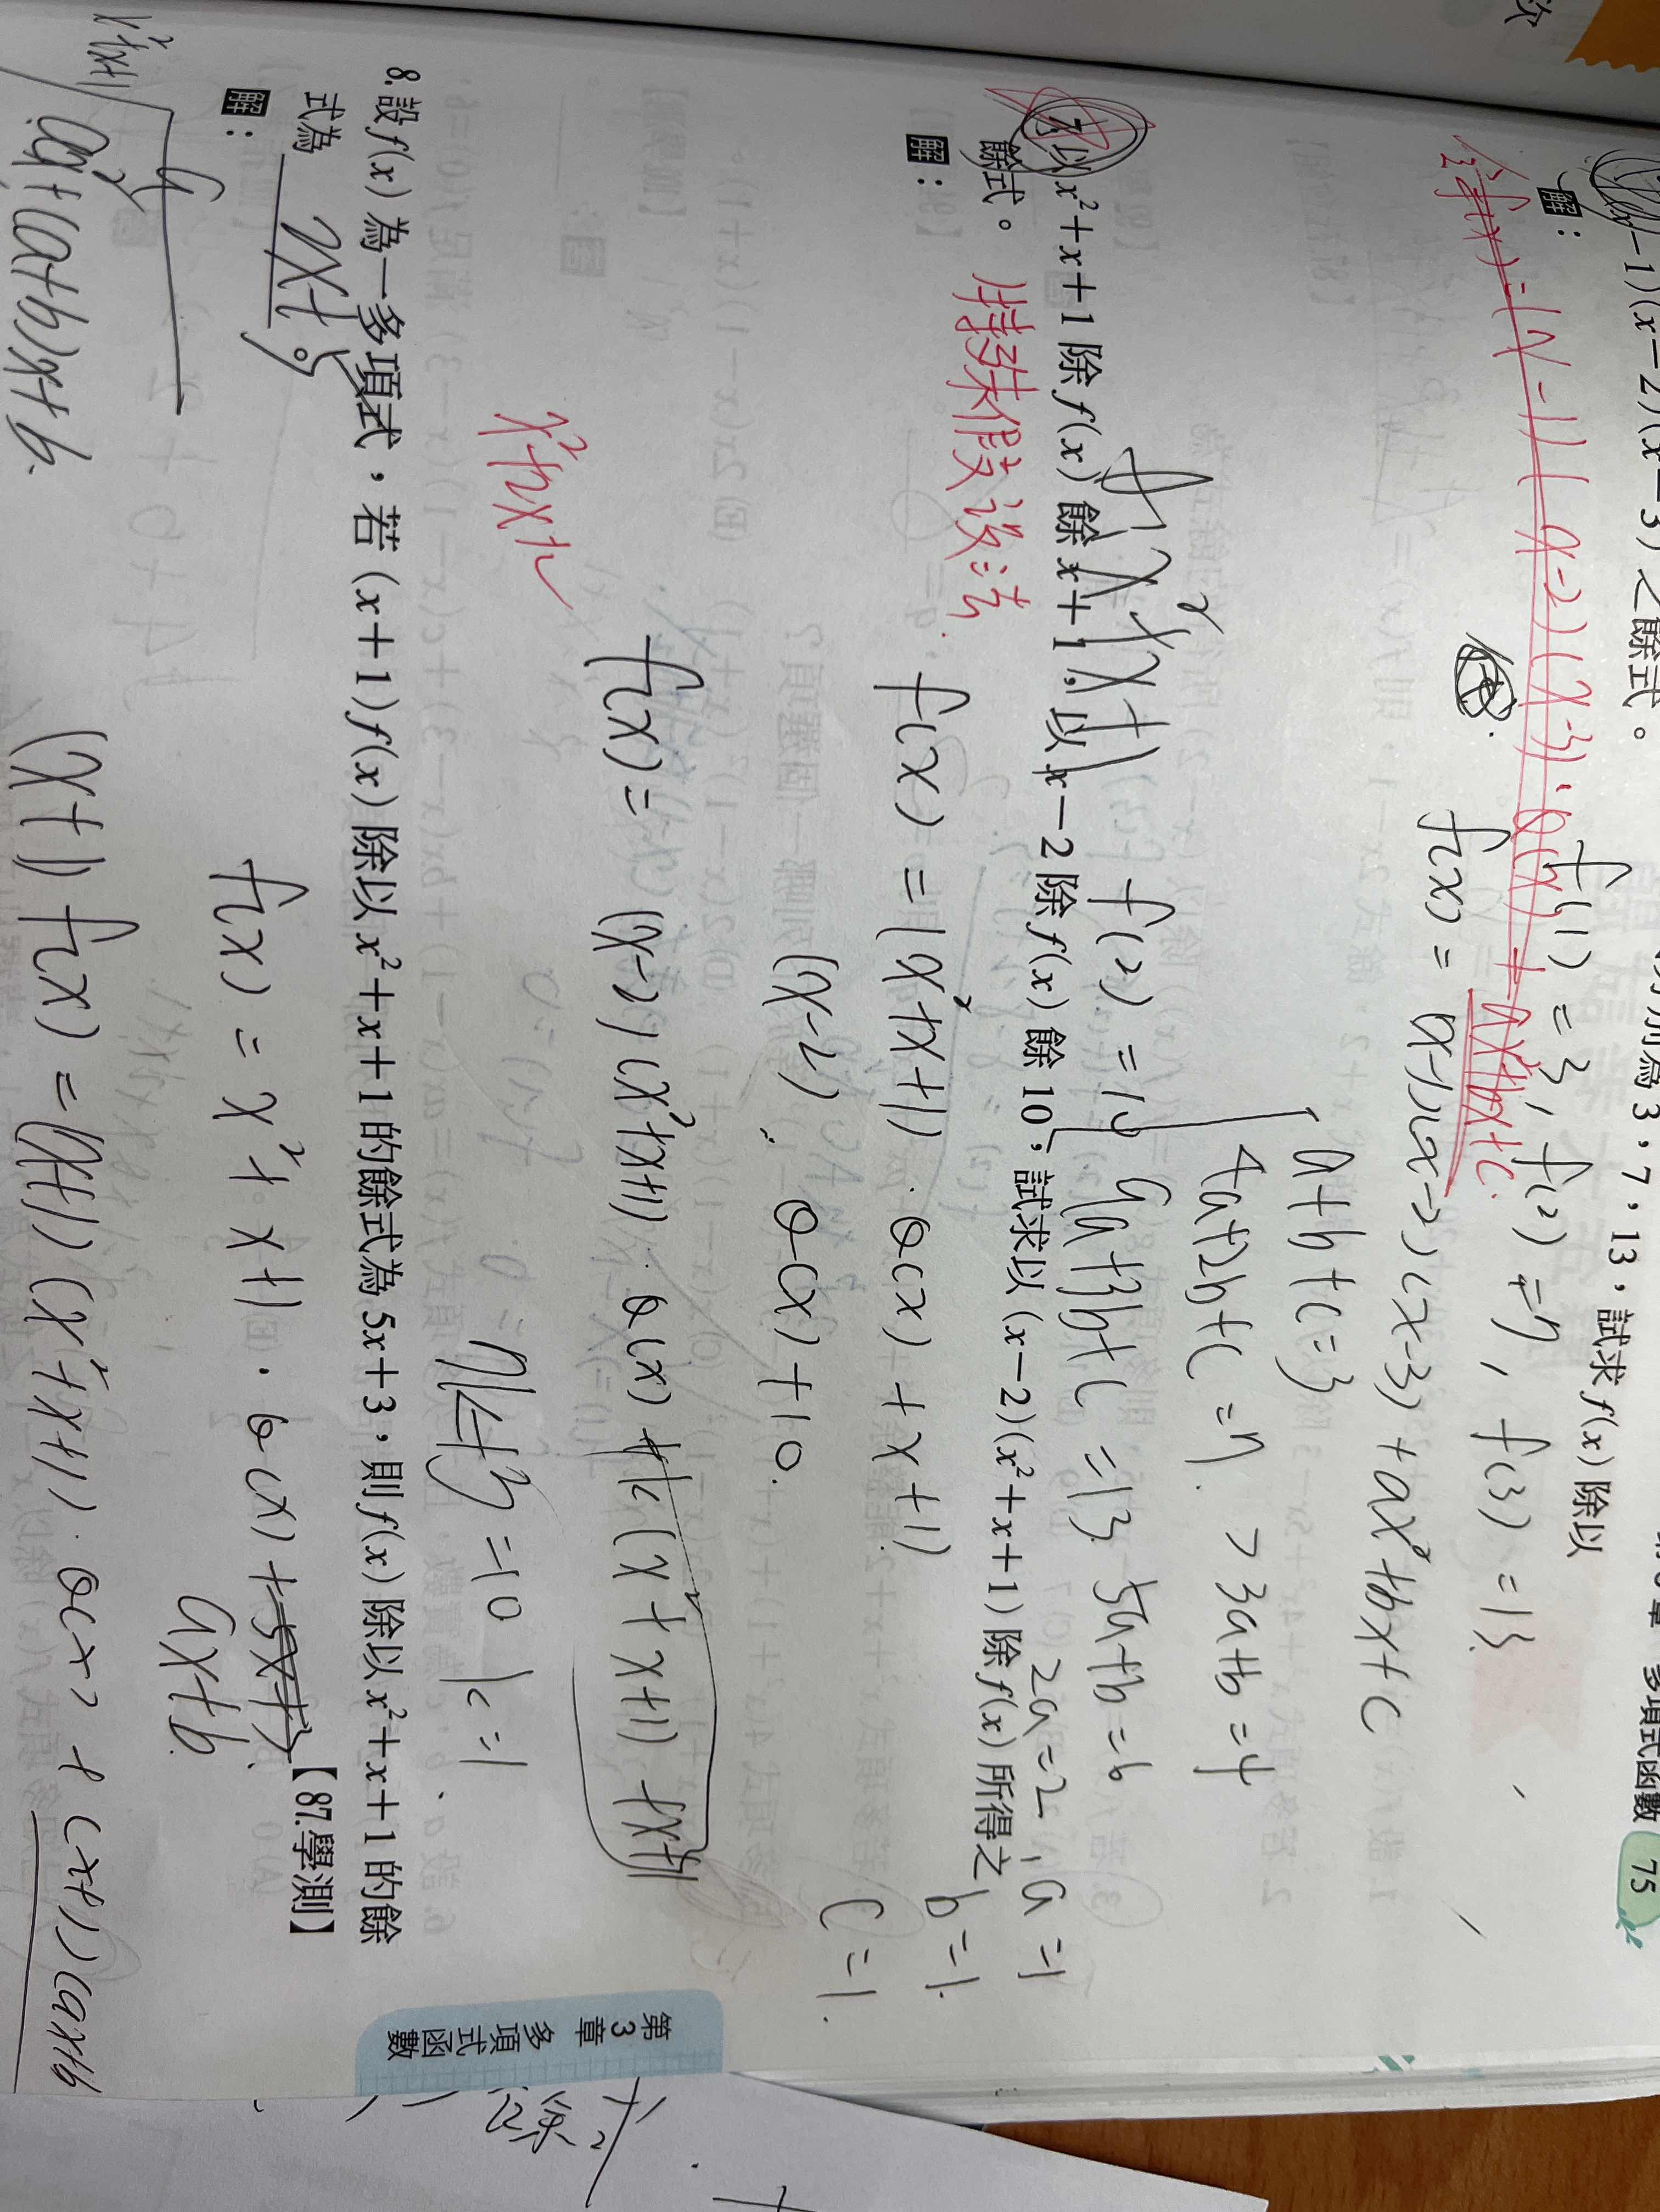 75
多項式函數
分別為3,7,13,試求f(x)除以
-1)(x-2)(x-3)之餘式。
解:
f(1)=3, f(2)=7, f(3)=13.
f(x)=(x-1)(x-2)(x-3)+ax²+bx+c
a+b+c=3
4a+2b+c=7. >3a+b=4
9a+3b+c=13. 5a+b=6
2a=2, a=1
b=1.
c=1.
f(2)=10
7.以x²+x+1除f(x)餘x+1,以x-2除f(x)餘10,試求以(x-2)(x²+x+1)除f(x)所得之
餘式。
特殊假設法
解:
f(x)=(x²+x+1)·Q(x)+x+1
(x-2). Q(x)+10.
f(x)=(x-2)(x²+x+1)·Q(x)+k(x²+x+1)+x+1
7k+3=10 k=1
8.設f(x)為一多項式,若(x+1)f(x)除以x²+x+1的餘式為5x+3,則f(x)除以x²+x+1的餘
式為2x+5
【87.學測】
解:
f(x)=x²+x+1·Q(x)+5x+3
ax+b.
(x+1)f(x)=(x+1)(x²+x+1)·Q(x)+(x+1)(ax+b
x²+x+1
a
ax²+(a+b)x+b.
第3章
多項式函數